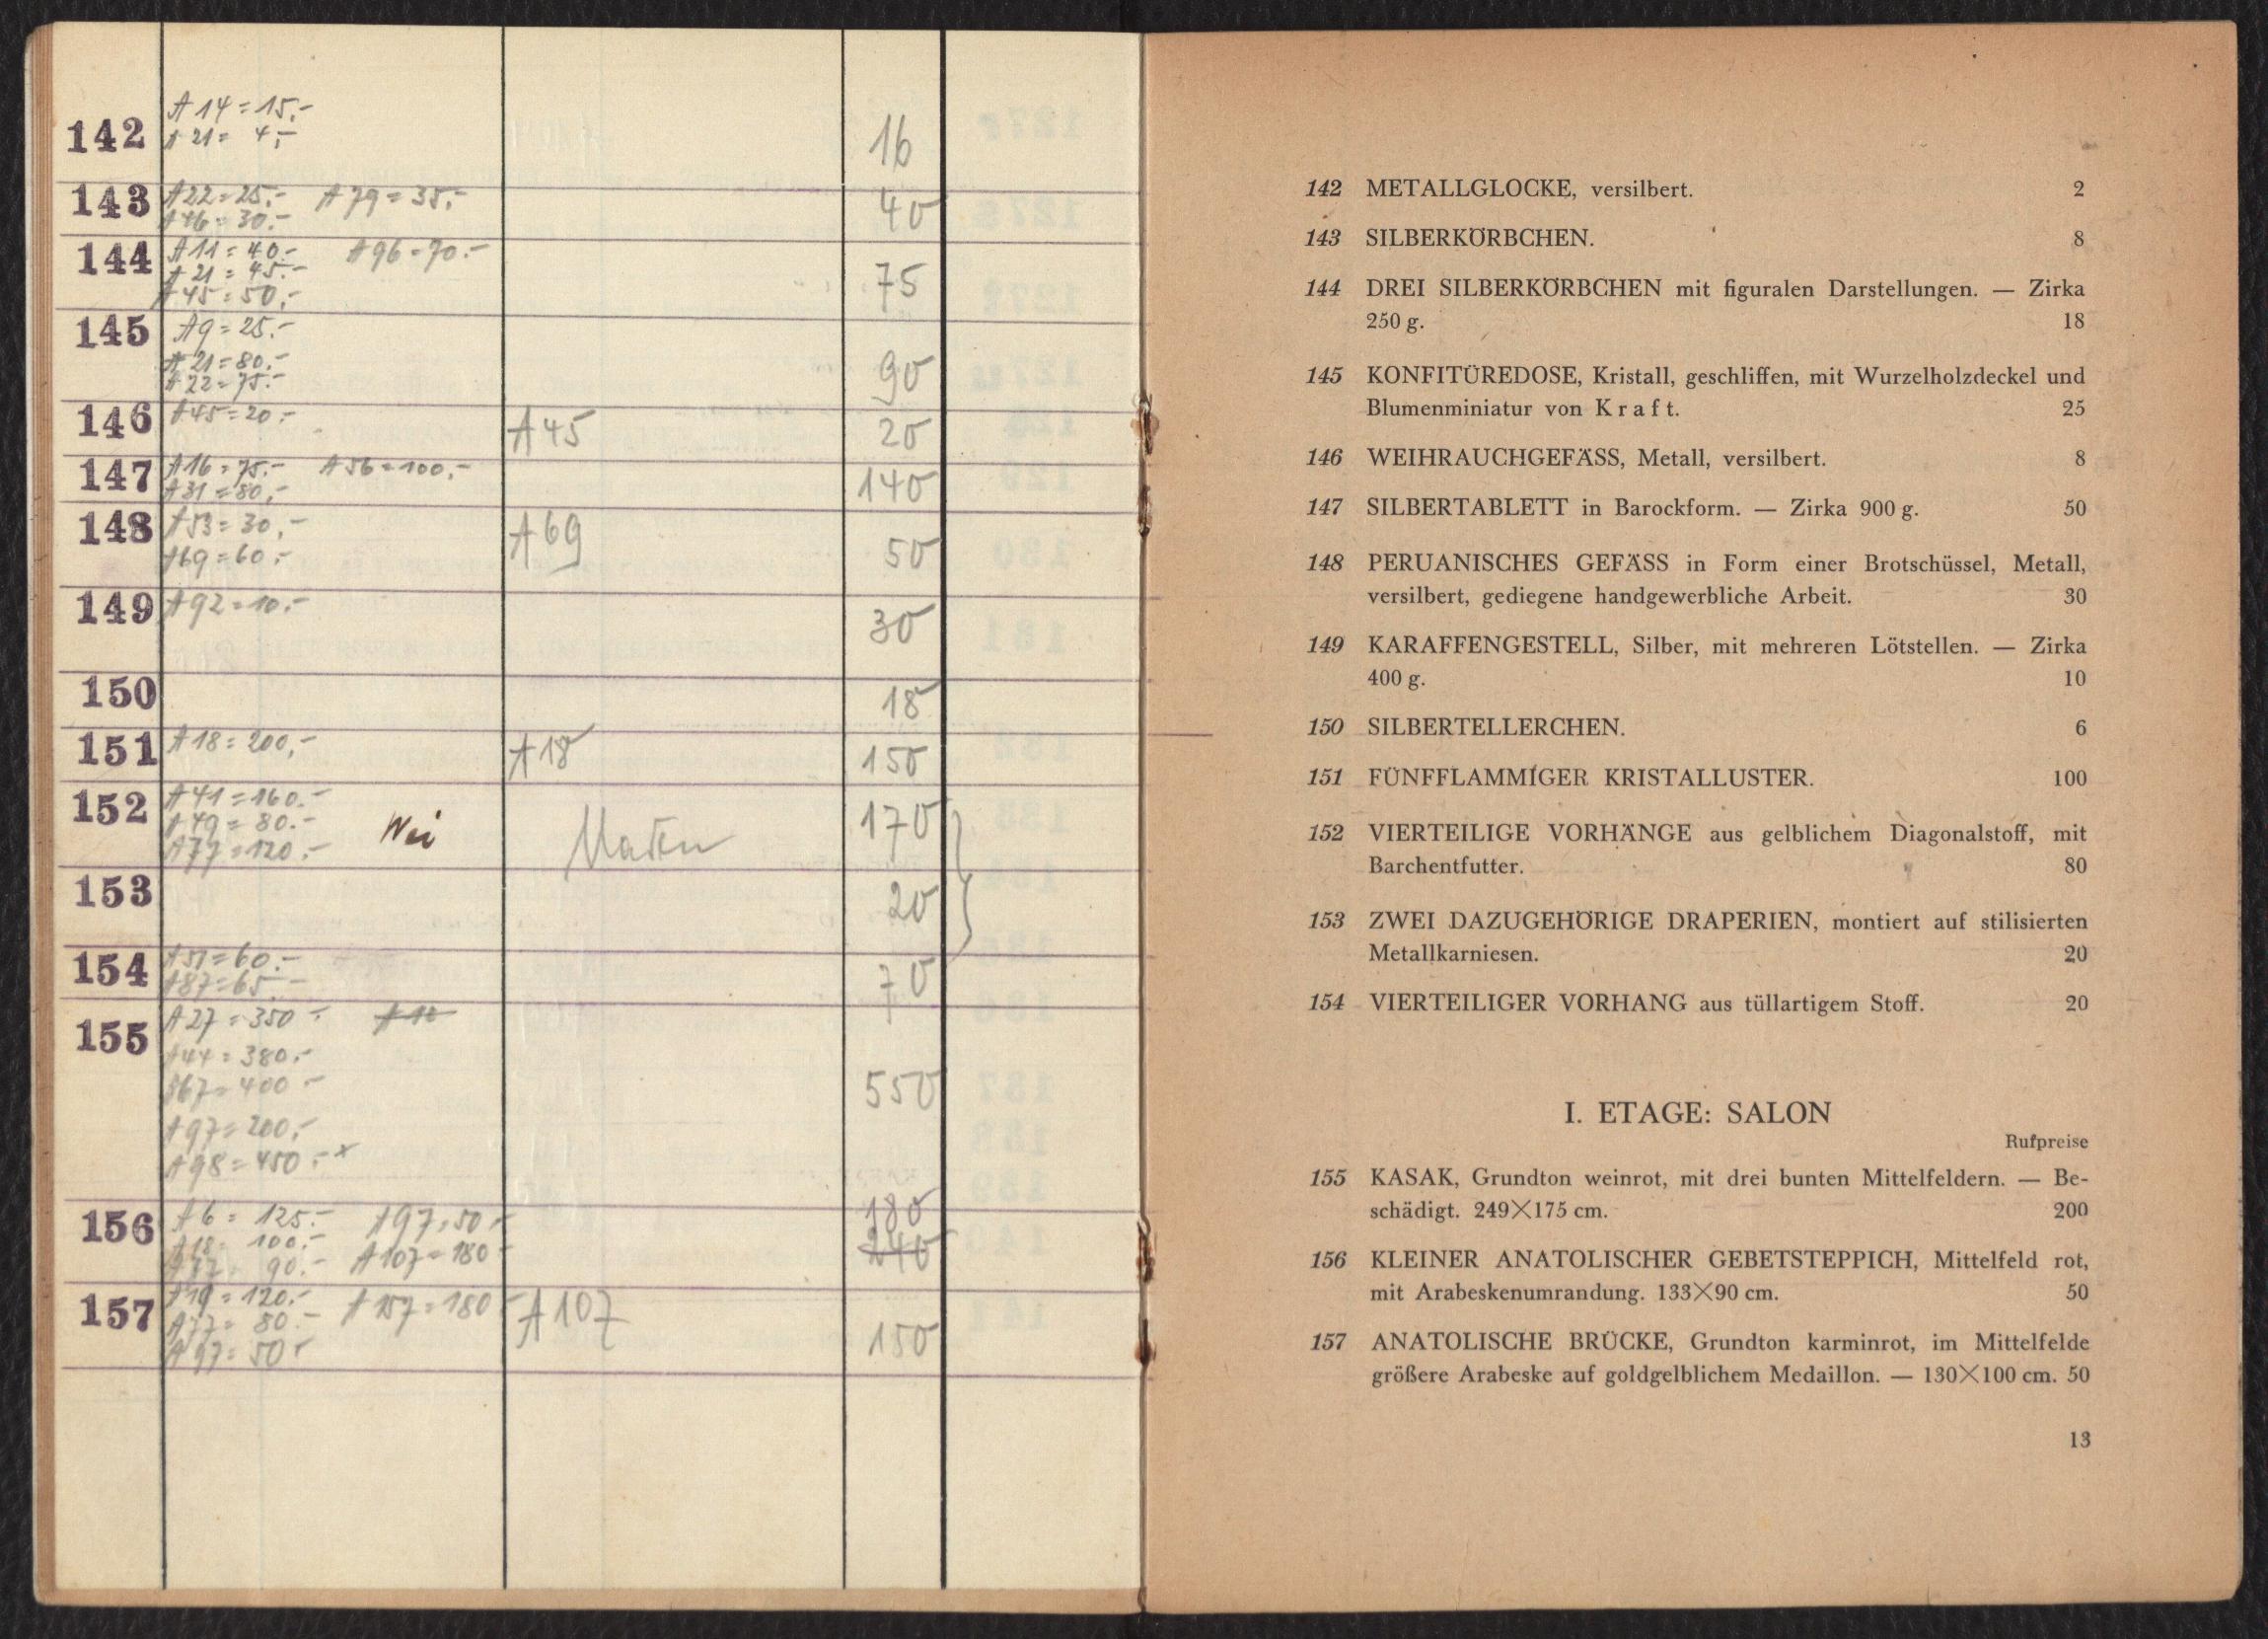 142 A 14 = 15.- 16
A 21 = 4,-
143 A 22 = 25.- A 79 = 35.- 40
A 46 = 30.-
144 A 11 = 40.- A 96 = 70.- 75
A 21 = 45.-
A 45 = 50.-
145 A 9 = 25.- 90
A 21 = 80.-
A 22 = 75.-
146 A 45 = 20.- A 45 20
147 A 16 = 75.- A 56 = 100.- 140
A 31 = 80.-
148 A 53 = 30.- A 69 50
A 69 = 60.-
149 A 92 = 10.- 30
150 18
151 A 18 = 200,- A 18 150
152 A 41 = 160.- 170
A 49 = 80.- Wei
A 77 = 120.-
153 20
154 A 51 = 60.- 70
A 87 = 65.-
155 A 27 = 350.- 550
A 44 = 380.-
367 = 400.-
A 97 = 200.-
A 98 = 450.- x
156 A 6 = 125.- A 97 = 50.- 180
A 18 = 100.- A 107 = 180 240
90.-
157 A 19 = 120.- A 157 = 180 A 107 150
A 77 = 80.-
A 97 = 50.-
142 METALLGLOCKE, versilbert. 2
143 SILBERKÖRBCHEN. 8
144 DREI SILBERKÖRBCHEN mit figuralen Darstellungen. — Zirka
250 g. 18
145 KONFITÜREDOSE, Kristall, geschliffen, mit Wurzelholzdeckel und
Blumenminiatur von Kraft. 25
146 WEIHRAUCHGEFÄSS, Metall, versilbert. 8
147 SILBERTABLETT in Barockform. — Zirka 900 g. 50
148 PERUANISCHES GEFÄSS in Form einer Brotschüssel, Metall,
versilbert, gediegene handgewerbliche Arbeit. 30
149 KARAFFENGESTELL, Silber, mit mehreren Lötstellen. — Zirka
400 g. 10
150 SILBERTELLERCHEN. 6
151 FÜNFFLAMMIGER KRISTALLUSTER. 100
152 VIERTEILIGE VORHÄNGE aus gelblichem Diagonalstoff, mit
Barchentfutter. 80
153 ZWEI DAZUGEHÖRIGE DRAPERIEN, montiert auf stilisierten
Metallkarniesen. 20
154 VIERTEILIGER VORHANG aus tüllartigem Stoff. 20
I. ETAGE: SALON
Rufpreise
155 KASAK, Grundton weinrot, mit drei bunten Mittelfeldern. — Be-
schädigt. 249×175 cm. 200
156 KLEINER ANATOLISCHER GEBETSTEPPICH, Mittelfeld rot,
mit Arabeskenumrandung. 133×90 cm. 50
157 ANATOLISCHE BRÜCKE, Grundton karminrot, im Mittelfelde
größere Arabeske auf goldgelblichem Medaillon. — 130×100 cm. 50
13